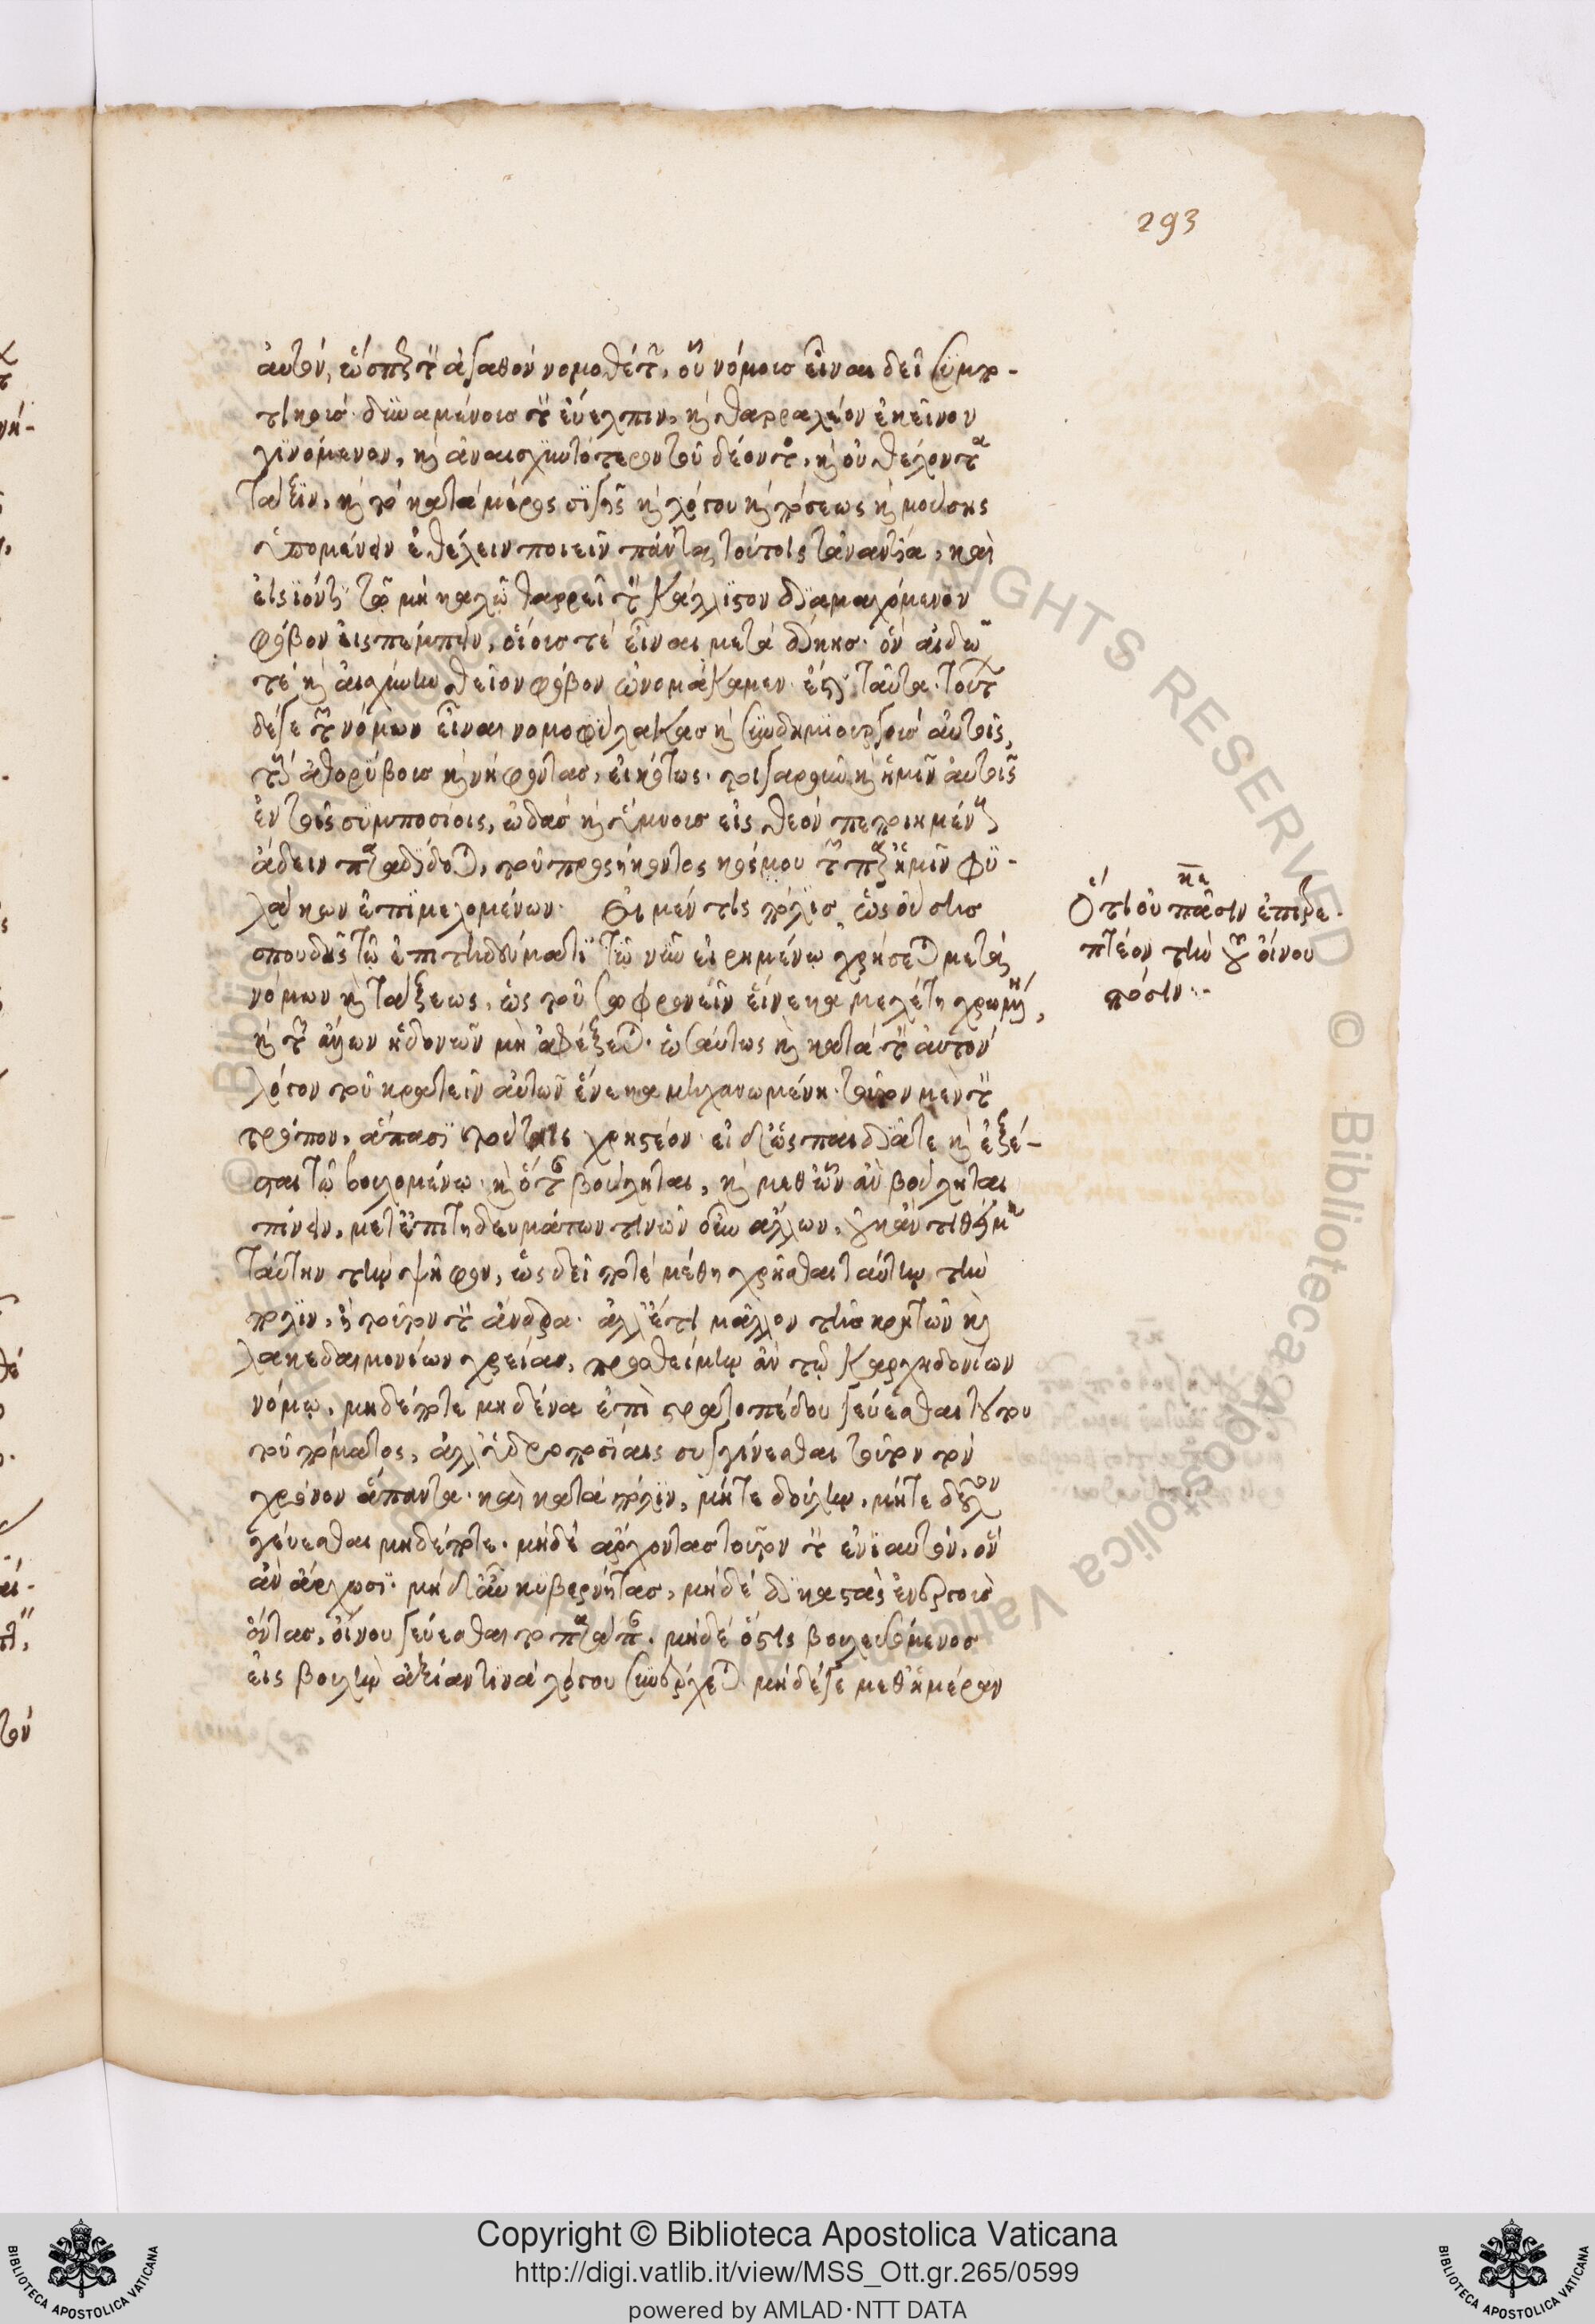 293
αὐτόν, ὥσπερ τὸν ἀγαθὸν νομοθέτην, οὗ νόμοις εἶναι δεῖ συμπο-
τικοῖς δυναμένοις τὸν εὔελπιν, καὶ θαρραλέον ἐκεῖνον
γινόμενον, καὶ ἀναισχυντότερον τοῦ δέοντος, καὶ οὐ θέλοντα
τάξιν, καὶ τὸ κατὰ μέρος σιγῆς καὶ λόγου καὶ πόσεως καὶ μούσης
ὑπομένειν ἐθέλειν ποιεῖν πάντα τούτοις τἀναντία, καὶ
εἰσιόντι τῷ μὴ καλῷ θάρρει τὸν κάλλιστον διαμαχόμενον
φόβον εἰσπέμπειν, οἵοις τέ εἶναι μετὰ δίκης. ὃν αἰδῶ
τέ καὶ αἰσχύνην θεῖον φόβον ὠνομάκαμεν. ἔστι ταῦτα. τούτων
δέ γε τῶν νόμων εἶναι νομοφύλακας καὶ συνδημιουργοὺς αὐτοῖς,
τοὺς ἀθορύβους καὶ νήφοντας, εἰκότως.
ἐν τοῖς συμποσίοις, ὠδὰς καὶ ὕμνοις εἰς θεόν
ᾄδειν παραδίδοται, τοῦ προσήκοντος κόσμου τῶν παρ' ἡμῖν φυ-
λάκων ἐπιμελομένων. Εἰ μέν τις πόλις, ὡς οὔσης
σπουδῆς τῷ ἐπιτηδεύματι τῷ νῦν εἰρημένῳ χρήσεται μετὰ
νόμων καὶ τάξεως, ὡς τοῦ σωφρονεῖν εἵνεκα μελέτῃ χρωμένη,
καὶ τῶν ἄλλων ἡδονῶν μὴ ἀφέξεται. ὡσαύτως καὶ κατὰ τὸν αὐτὸν
λόγον τοῦ κρατεῖν αὐτῶν ἕνεκα μηχανωμένη. τοῦτον μὲν τὸν
τρόπον, ἅπασι τούτοις χρηστέον. εἰ δ' ὡς παιδιᾶτε καὶ ἐξέ-
σται τῷ βουλομένῳ. καὶ ὅταν βούληται, καὶ μεθ' ὧν ἂν βούληται
πίνειν, μετ' ἐπιτηδευμάτων τινῶν οὖν ἄλλων, οὐκ ἂν τιθείμην
ταύτην τὴν ψῆφον, ὡς δεῖ ποτέ μέθῃ χρῆσθαι ταύτην τὴν
πόλιν, ἢ τοῦτον τὸν ἄνδρα. ἀλλ' ἔτι μᾶλλον τῆς κρητῶν καὶ
λακεδαιμονίων χρείας, προσθείμην ἂν τῷ Καρχηδονίων
νόμῳ, μηδέποτε μηδένα ἐπὶ στρατοπέδου γεύεσθαι τούτου
τοῦ πόματος, ἀλλ' ὑδροποσίαις συγγίνεσθαι τοῦτον τὸν
χρόνον ἅπαντα. καὶ κατὰ πόλιν, μήτε δούλην, μήτε δοῦλον
γεύεσθαι μηδέποτε. μηδὲ ἄρχοντας τοῦτον τὸν ἐνιαυτόν, ὃν
ἂν ἄρχωσι. μηδ' αὖ κυβερνήτας, μηδὲ δικαστὰς ἐνεργοὺς
ὄντας, οἴνου γεύεσθαι τὸ παράπαν. μηδὲ ὅστις βουλευσόμενος
εἰς βουλὴν ἀξίαν τινὰ λόγου συνέρχεται μηδέ γε μεθ' ἡμέραν
κε
Ὅτι οὐ πᾶσιν ἐπιτρε-
πτέον τὴν τοῦ οἴνου
πόσιν
Copyright © Biblioteca Apostolica Vaticana
http://digi.vatlib.it/view/MSS_Ott.gr.265/0599
powered by AMLAD·NTT DATA
BIBLIOTECA APOSTOLICA VATICANA
BIBLIOTECA APOSTOLICA VATICANA